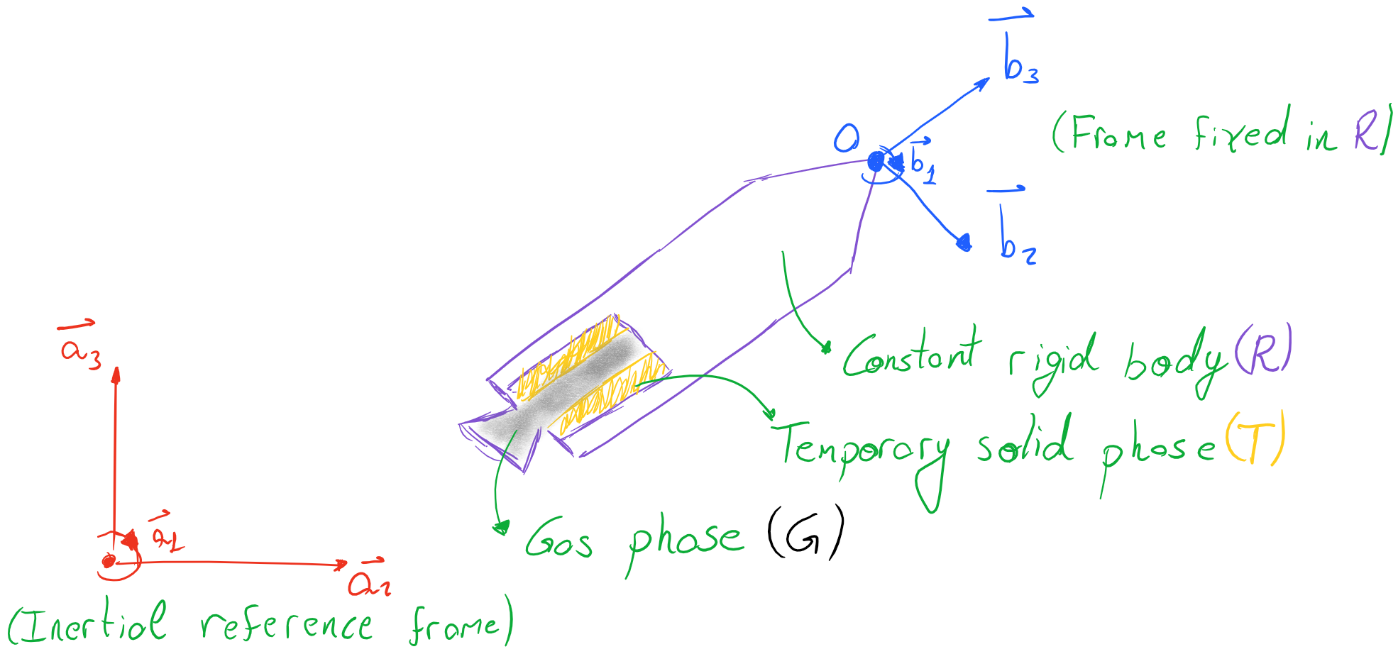 b₃
(Frame fixed in R)
O
b₁
b₂
a₃
Constant rigid body (R)
Temporary solid phase (T)
a₁
Gas phase (G)
a₂
(Inertial reference frame)